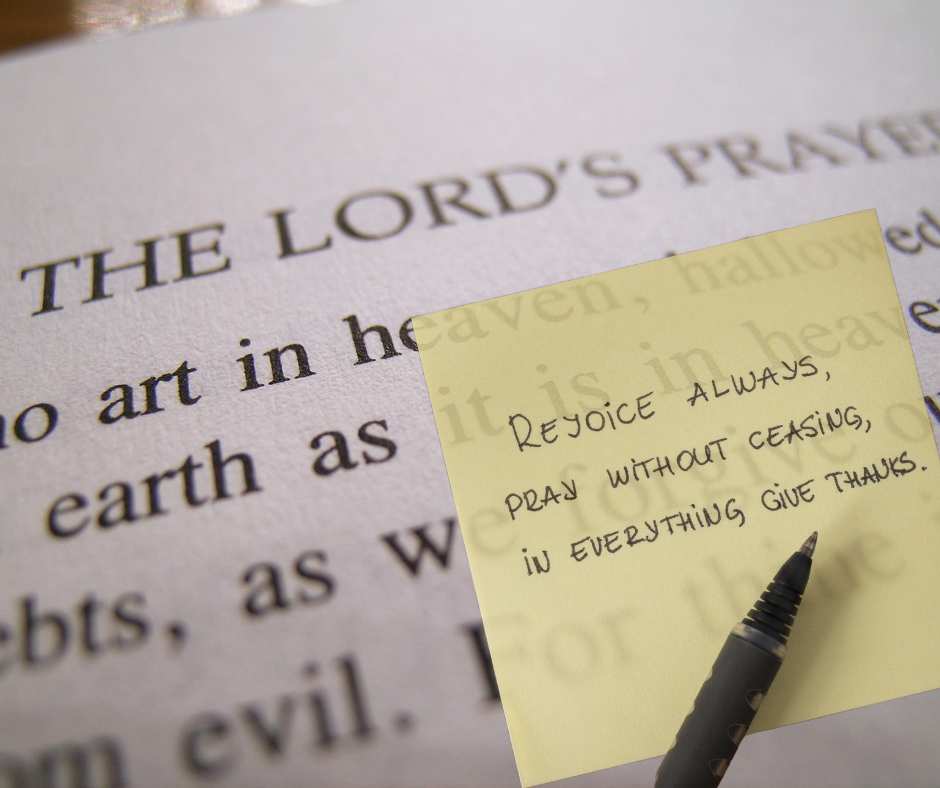 THE LORD'S PRAYER
art in heaven, hallowed
earth as it is in heave
ebts, as we forgive
om evil. For thine
REJOICE ALWAYS,
PRAY WITHOUT CEASING,
IN EVERYTHING GIVE THANKS.